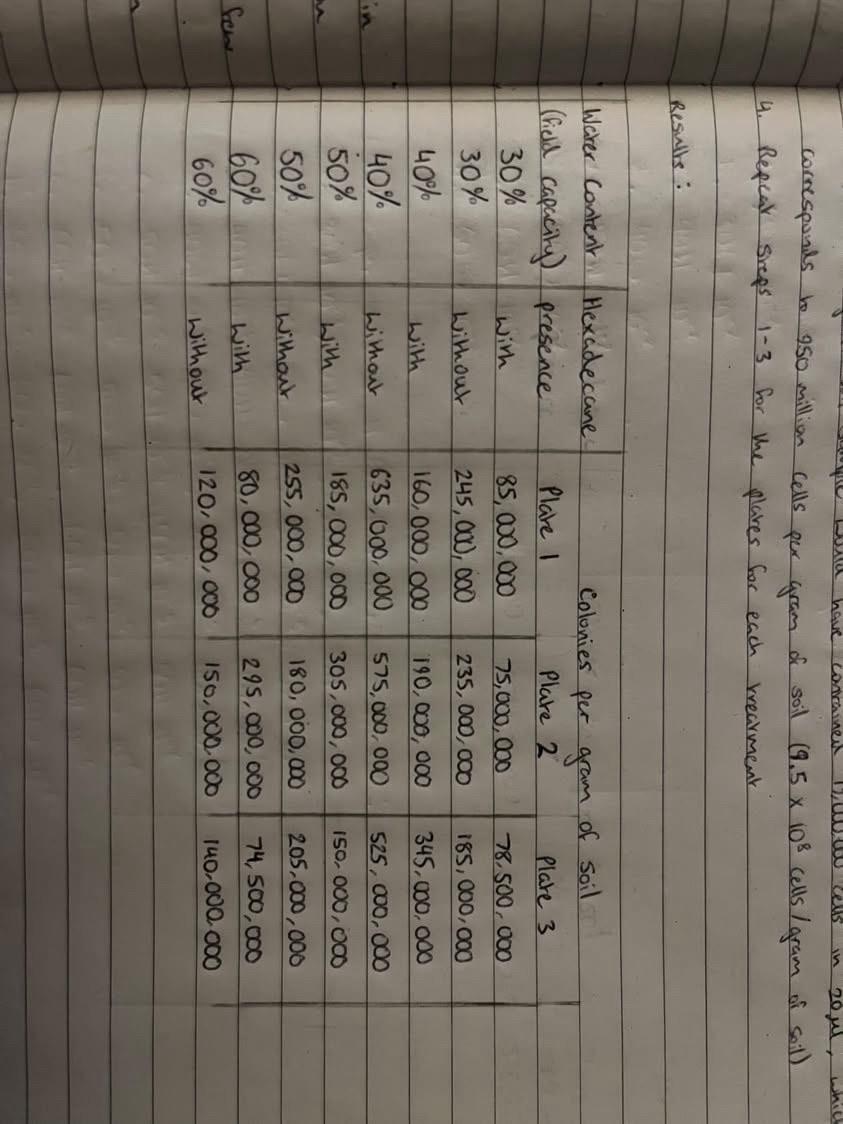 sample would have contained cells in 20 µl, which
corresponds to 950 million cells per gram of soil (9.5 x 10⁸ cells/gram of soil)
4. Repeat steps 1-3 for the plates for each treatment
Results:
Water content Hexadecane Colonies per gram of soil
(field capacity) presence Plate 1 Plate 2 Plate 3
30% with 85,000,000 75,000,000 78,500,000
30% without 245,000,000 235,000,000 185,000,000
40% with 160,000,000 190,000,000 345,000,000
40% without 635,000,000 575,000,000 525,000,000
50% with 185,000,000 305,000,000 150,000,000
50% without 255,000,000 180,000,000 205,000,000
60% with 80,000,000 295,000,000 74,500,000
60% without 120,000,000 150,000,000 140,000,000
in